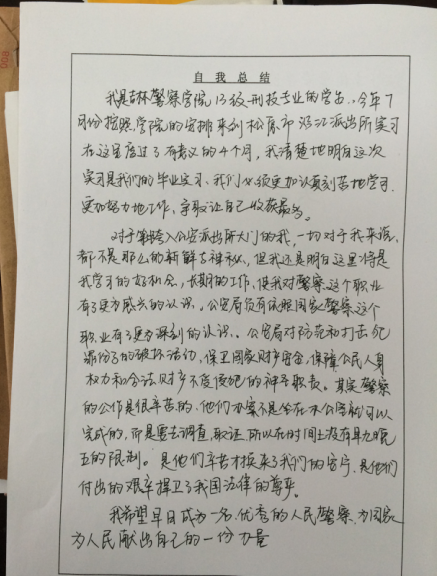 自 我 总 结
我是吉林警察学院13级刑技专业的学员,今年7
月份按照学院的安排来到松原市 派出所实习
在这里度过了有意义的4个月,我清楚地明白这次
实习是我们的毕业实习、我们必须更加认真刻苦地学习.
更加努力地工作、争取让自己收获最多。
对于第一次跨入公安派出所大门的我,一切对于我来说,
都不是那么的新鲜与神秘,但我还是明白这里将是
我学习的好机会,长期的工作,使我对警察这个职业
有了更为感兴的认识。公安局负有依照国家警察这个
职业有了更为深刻的认识。公安局对防范和打击犯
罪份子的破坏活动,保卫国家财产安全,保障公民人身
权力和合法财产不受侵犯的神圣职责。其实警察
的工作是很辛苦的,他们办案不是坐在办公室就可以
完成的,而是要去调查,取证,所以在时间上没有早九晚
五的限制。是他们辛苦才换来了我们的安宁,是他们
付出的艰辛捍卫了我国法律的尊严。
我希望早日成为一名优秀的人民警察,为国家
为人民献出自己的一份力量